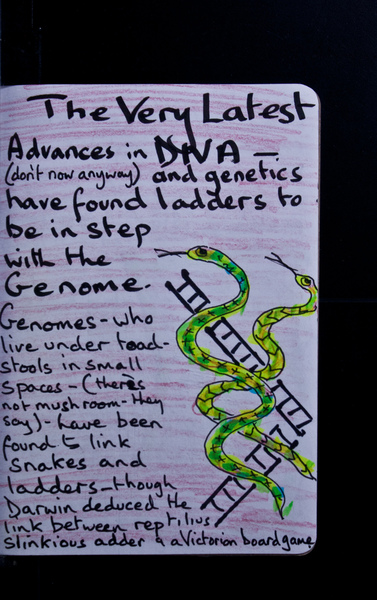 The Very Latest
Advances in DNA -
(don't now anyway) and genetics
have found ladders to
be in step
with the
Genome.
Genomes - who
live under toad-
stools in small
spaces - (theres
not mushroom - they
say) - have been
found to link
snakes and
ladders - though
Darwin deduced the
link between reptilius
slinkious adder & a Victorian boardgame